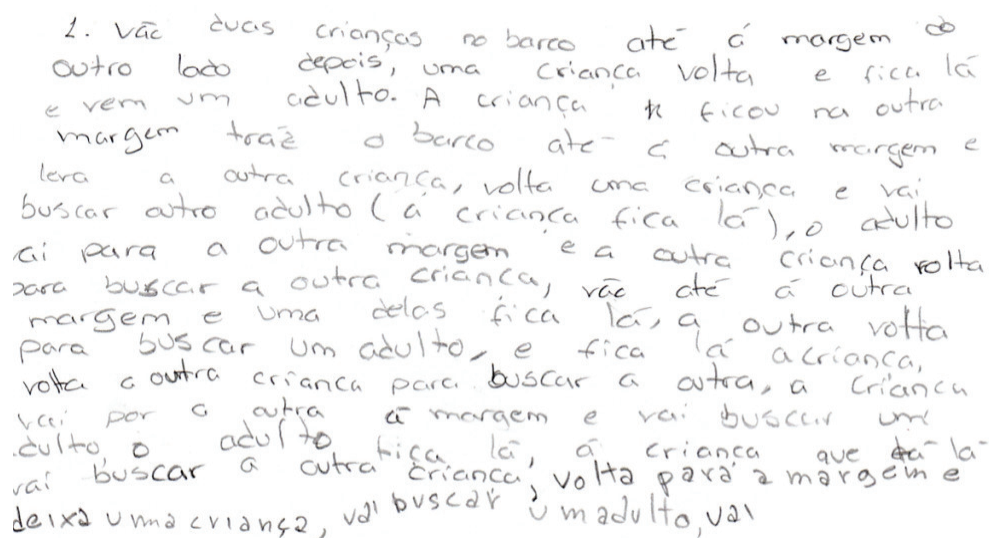 1. Vão duas crianças no barco até á margem do
outro lado depois, uma criança volta e fica lá
e vem um adulto. A criança ficou na outra
margem traz o barco até á outra margem e
leva a outra criança, volta uma criança e vai
buscar outro adulto (a criança fica lá), o adulto
ai para a outra margem e a outra criança volta
para buscar a outra criança, vão até á outra
margem e uma delas fica lá, a outra volta
para buscar um adulto, e fica lá a criança,
volta a outra criança para buscar a outra, a criança
vai por a outra á margem e vai buscar um
dulto, o adulto fica lá, a criança que tá lá
vai buscar a outra criança, volta para a margem e
deixa uma criança, vai buscar um adulto, vai